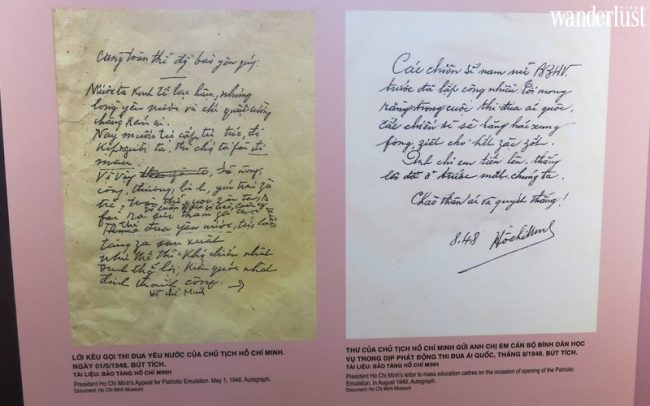 wanderlust
TIPS
Cùng toàn thể đồng bào yêu quý,
Nước ta kinh tế lạc hậu, nhưng
lòng yêu nước và chí quật cường
chẳng kém ai.
Nay muốn tự cấp tự túc, đi
kịp người ta, thì chúng ta phải đi
mau.
Vì vậy
công, thương, binh,
trẻ,
Thi đua yêu nước,
tăng gia sản xuất
như thế thì kháng chiến nhất
định thắng lợi, kiến quốc nhất
định thành công.
Hồ Chí Minh
Các chiến sĩ nam nữ BZHV.
trước đã lập công nhiều. Tôi mong
rằng trong cuộc thi đua ái quốc,
các chiến sĩ sẽ hăng hái xung
fong, ziệt cho hết zặc zốt.
Anh chị em tiến lên. Thắng
lợi
Chào thân ái và quyết thắng!
8.48 Hồ Chí Minh
LỜI KÊU GỌI THI ĐUA YÊU NƯỚC CỦA CHỦ TỊCH HỒ CHÍ MINH.
NGÀY 01/5/1948. BÚT TÍCH.
TÀI LIỆU: BẢO TÀNG HỒ CHÍ MINH
President Ho Chi Minh's Appeal for Patriotic Emulation. May 1, 1948. Autograph.
Document: Ho Chi Minh Museum
THƯ CỦA CHỦ TỊCH HỒ CHÍ MINH GỬI ANH CHỊ EM CÁN BỘ BÌNH DÂN HỌC
VỤ TRONG DỊP PHÁT ĐỘNG THI ĐUA ÁI QUỐC, THÁNG 8/1948. BÚT TÍCH.
TÀI LIỆU: BẢO TÀNG HỒ CHÍ MINH
President Ho Chi Minh's letter to mass education cadres on the occasion of opening of the Patriotic
Emulation, in August 1948. Autograph.
Document: Ho Chi Minh Museum